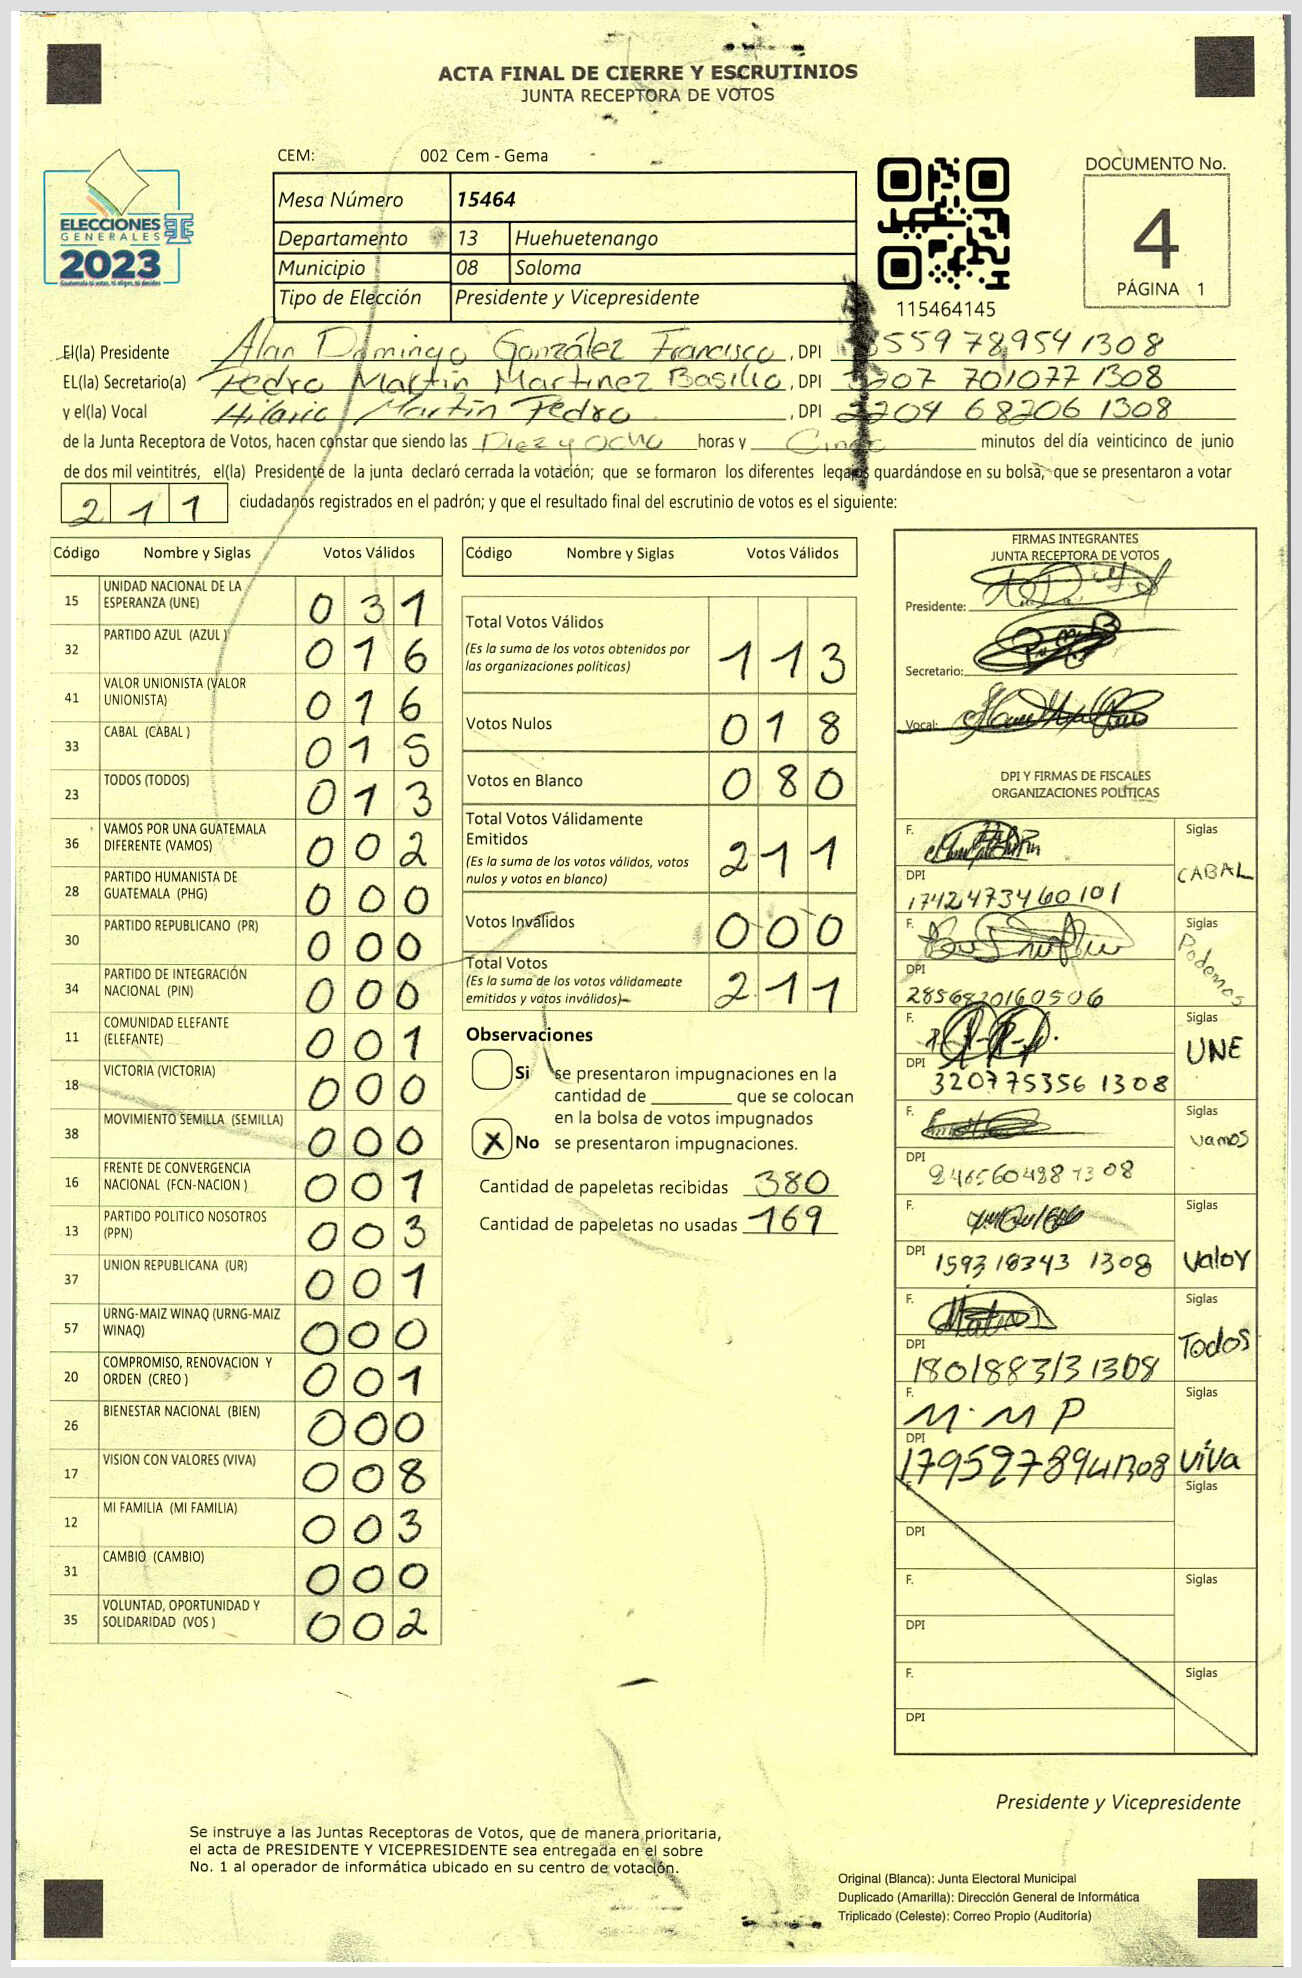 ACTA FINAL DE CIERRE Y ESCRUTINIOS
JUNTA RECEPTORA DE VOTOS
CEM: 002 Cem - Gema
Mesa Número 15464
Departamento 13 Huehuetenango
Municipio 08 Soloma
Tipo de Elección Presidente y Vicepresidente
ELECCIONES
GENERALES
2023
Guatemala tú votas, tú eliges, tú decides
115464145
DOCUMENTO No.
4
PÁGINA 1
El(la) Presidente Alan Domingo González Francisco, DPI 559789541308
EL(la) Secretario(a) Pedro Martín Martinez Basilio, DPI 3207 701077 1308
y el(la) Vocal Hilario Martín Pedro, DPI 2204 68206 1308
de la Junta Receptora de Votos, hacen constar que siendo las Diez y Ocho horas y Cinco minutos del día veinticinco de junio
de dos mil veintitrés, el(la) Presidente de la junta declaró cerrada la votación; que se formaron los diferentes legajos guardándose en su bolsa, que se presentaron a votar
211 ciudadanos registrados en el padrón; y que el resultado final del escrutinio de votos es el siguiente:
Código Nombre y Siglas Votos Válidos
15 UNIDAD NACIONAL DE LA ESPERANZA (UNE) 031
32 PARTIDO AZUL (AZUL ) 016
41 VALOR UNIONISTA (VALOR UNIONISTA) 016
33 CABAL (CABAL ) 015
23 TODOS (TODOS) 013
36 VAMOS POR UNA GUATEMALA DIFERENTE (VAMOS) 002
28 PARTIDO HUMANISTA DE GUATEMALA (PHG) 000
30 PARTIDO REPUBLICANO (PR) 000
34 PARTIDO DE INTEGRACIÓN NACIONAL (PIN) 000
11 COMUNIDAD ELEFANTE (ELEFANTE) 001
18 VICTORIA (VICTORIA) 000
38 MOVIMIENTO SEMILLA (SEMILLA) 000
16 FRENTE DE CONVERGENCIA NACIONAL (FCN-NACION ) 001
13 PARTIDO POLITICO NOSOTROS (PPN) 003
37 UNION REPUBLICANA (UR) 001
57 URNG-MAIZ WINAQ (URNG-MAIZ WINAQ) 000
20 COMPROMISO, RENOVACION Y ORDEN (CREO ) 001
26 BIENESTAR NACIONAL (BIEN) 000
17 VISION CON VALORES (VIVA) 008
12 MI FAMILIA (MI FAMILIA) 003
31 CAMBIO (CAMBIO) 000
35 VOLUNTAD, OPORTUNIDAD Y SOLIDARIDAD (VOS ) 002
Código Nombre y Siglas Votos Válidos
Total Votos Válidos 113
(Es la suma de los votos obtenidos por
las organizaciones políticas)
Votos Nulos 018
Votos en Blanco 080
Total Votos Válidamente
Emitidos 211
(Es la suma de los votos válidos, votos
nulos y votos en blanco)
Votos Inválidos 000
Total Votos 211
(Es la suma de los votos válidamente
emitidos y votos inválidos)
Observaciones
Si se presentaron impugnaciones en la
cantidad de ________ que se colocan
en la bolsa de votos impugnados
X No se presentaron impugnaciones.
Cantidad de papeletas recibidas 380
Cantidad de papeletas no usadas 169
FIRMAS INTEGRANTES
JUNTA RECEPTORA DE VOTOS
Presidente:
Secretario:
Vocal:
DPI Y FIRMAS DE FISCALES
ORGANIZACIONES POLÍTICAS
F. Siglas
DPI 1742473460101 CABAL
F. Siglas
DPI 2856820160506 Podemos
F. Siglas
DPI 320775356 1308 UNE
F. Siglas
DPI 246560488 1308 vamos
F. Siglas
DPI 159318343 1308 Valor
F. Siglas
DPI 1801883131308 Todos
F. M.MP Siglas
DPI 1795278941308 ViVa
F. Siglas
DPI
F. Siglas
DPI
F. Siglas
DPI
Presidente y Vicepresidente
Se instruye a las Juntas Receptoras de Votos, que de manera prioritaria,
el acta de PRESIDENTE Y VICEPRESIDENTE sea entregada en el sobre
No. 1 al operador de informática ubicado en su centro de votación.
Original (Blanca): Junta Electoral Municipal
Duplicado (Amarilla): Dirección General de Informática
Triplicado (Celeste): Correo Propio (Auditoría)